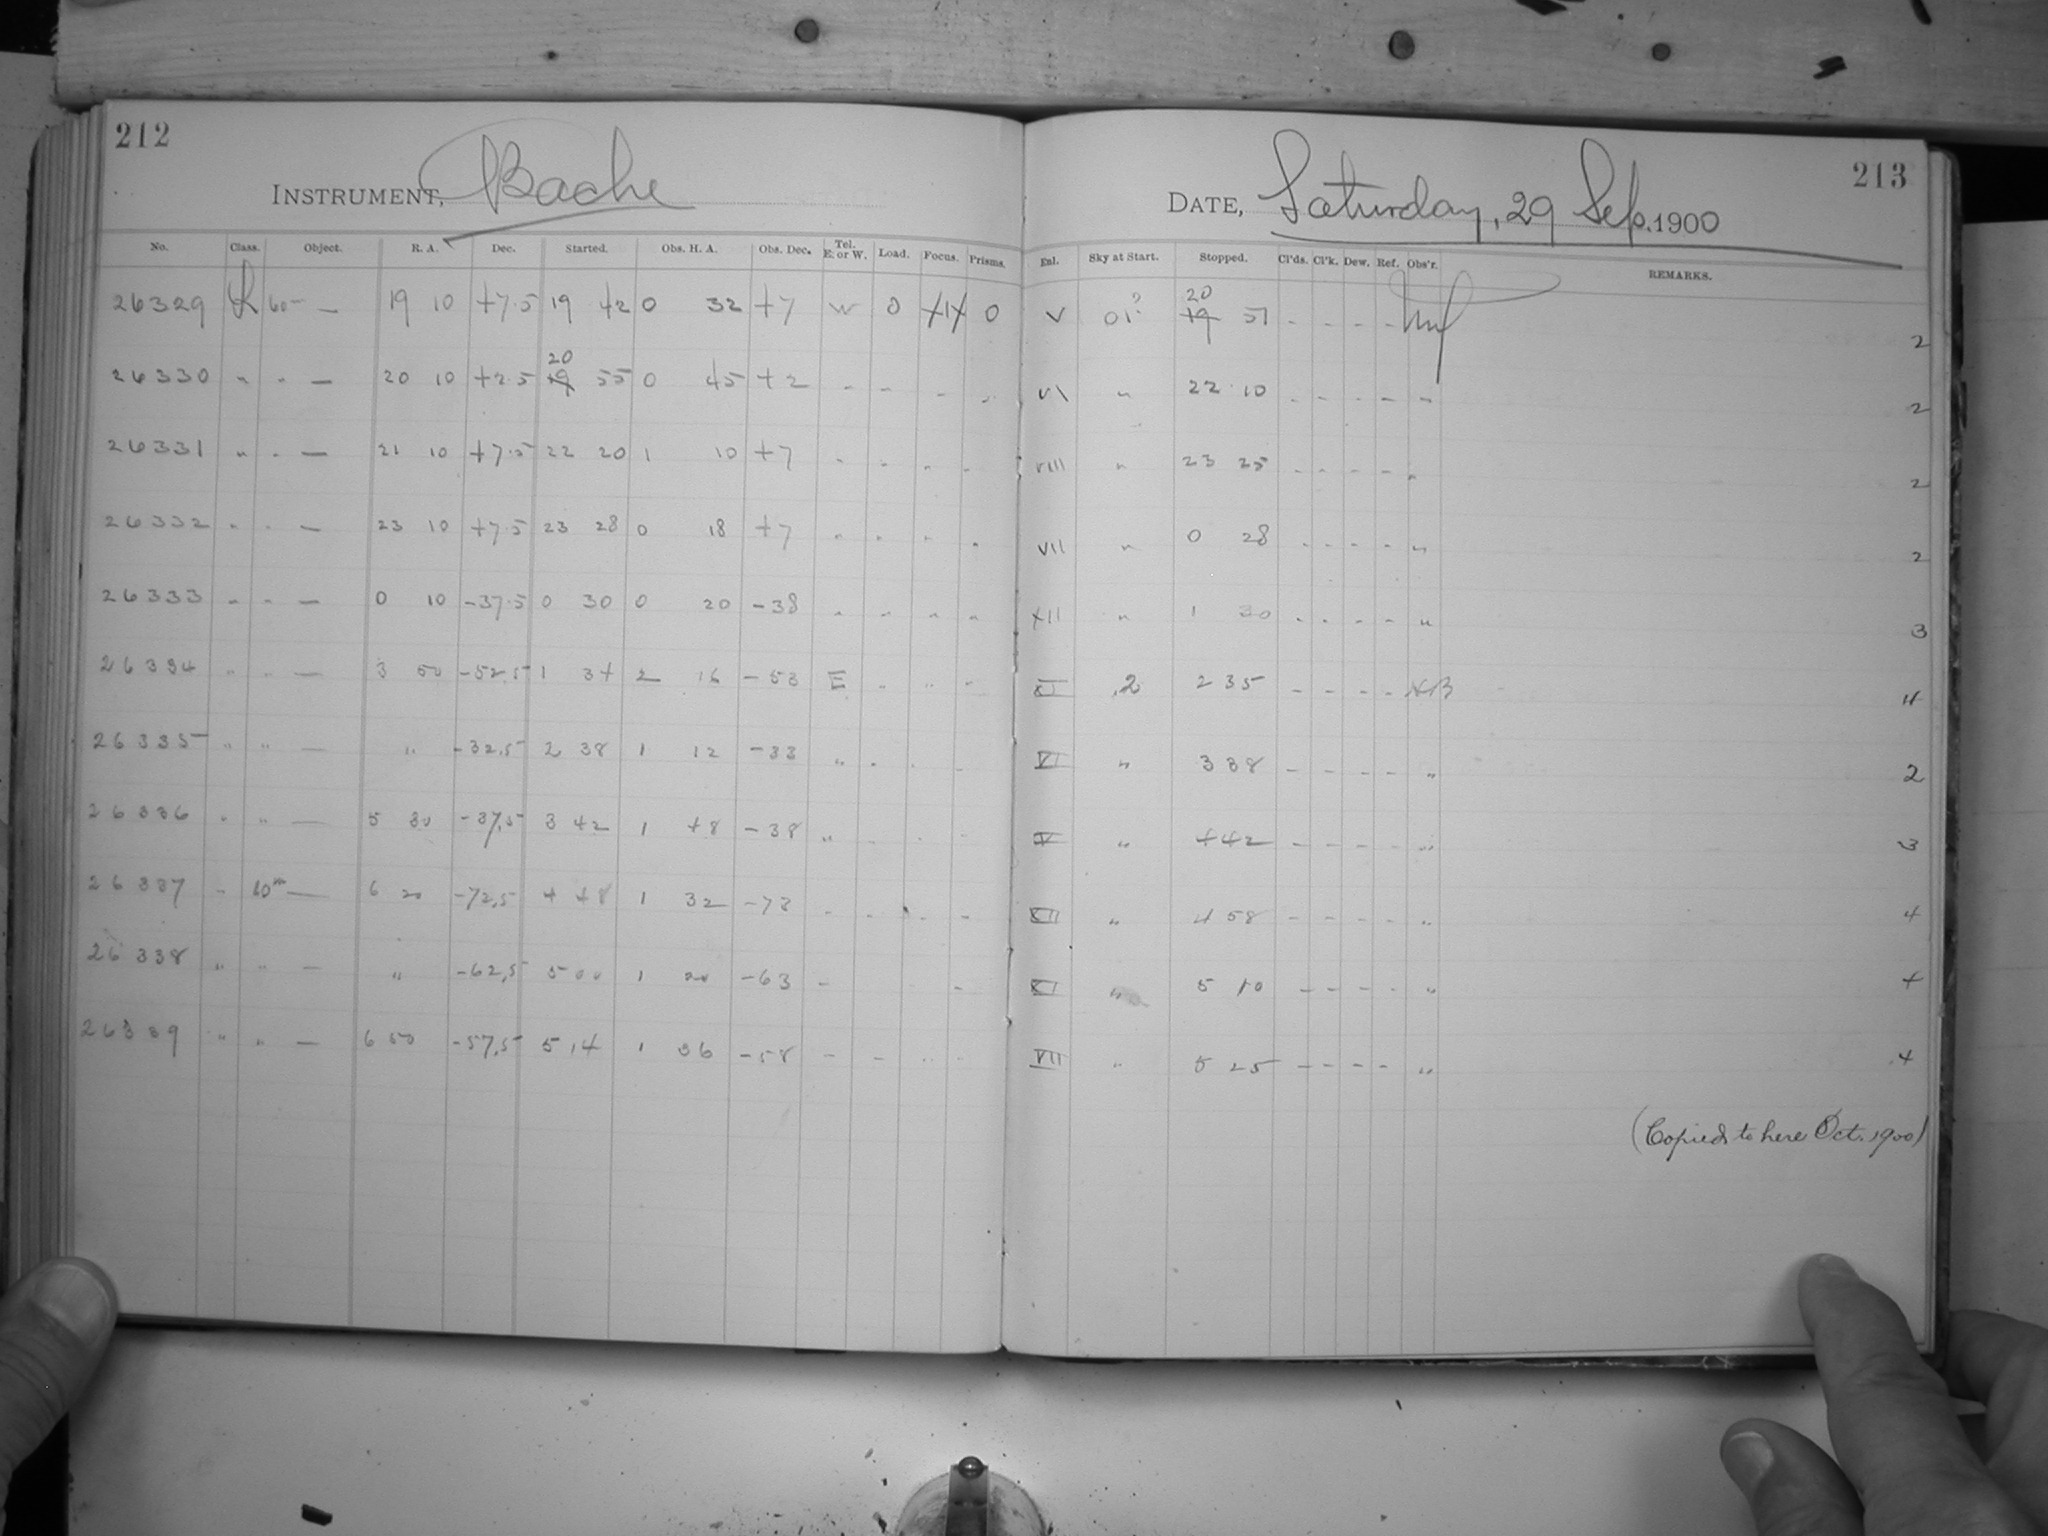 212
INSTRUMENT, Bache
No. Class. Object. R. A. Dec. Started. Obs. H. A. Obs. Dec. Tel. E. or W. Load. Focus. Prisms.
26329 L 60m — 19 10 +7.5 19 42 0 32 +7 W 0 0
26330 " " — 20 10 +2.5 20 19 55 0 45 +2 " " " "
26331 " " — 21 10 +7.5 22 20 1 10 +7 " " " "
26332 " " — 23 10 +7.5 23 28 0 18 +7 " " " "
26333 " " — 0 10 -37.5 0 30 0 20 -38 " " " "
26334 " " — 3 50 -52.5 1 34 2 16 -53 E " " "
26335 " " — " -32.5 2 38 1 12 -33 " " " "
26336 " " — 5 30 -37.5 3 42 1 48 -38 " " " "
26337 " 10m — 6 20 -72.5 4 48 1 32 -73 " " " "
26338 " " — " -62.5 5 00 1 20 -63 " "
26339 " " — 6 50 -57.5 5 14 1 36 -58 " " " "
213
DATE, Saturday, 29 Sep. 1900
Enl. Sky at Start. Stopped. Cl'ds. Cl'k. Dew. Ref. Obs'r. REMARKS.
V 01? 20 19 51 - - - - 2
VI " 22 10 - - - - " 2
VIII " 23 25 - - - - " 2
VII " 0 28 - - - - " 2
XII " 1 30 - - - - " 3
XI 2 2 35 - - - - 4
VI " 3 38 - - - - " 2
V " 4 42 - - - - " 3
XII " 4 58 - - - - " 4
XI " 5 10 - - - - " 4
VII " 5 25 - - - - " 4
(Copied to here Oct. 1900)